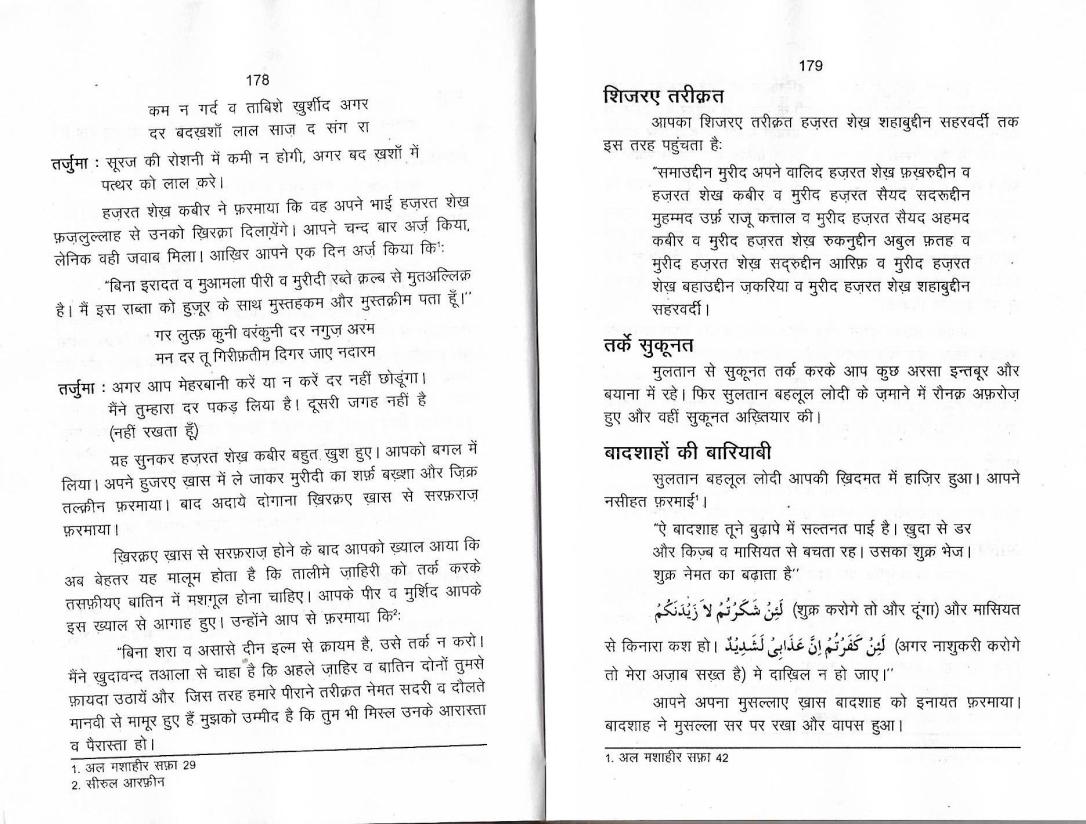 178
कम न गर्द व ताबिशे खुर्शीद अगर
दर बदखशाँ लाल साज़ द संग रा
तर्जुमा : सूरज की रोशनी में कमी न होगी, अगर बद ख़शाँ में
पत्थर को लाल करे।
हज़रत शेख़ कबीर ने फ़रमाया कि वह अपने भाई हज़रत शेख़
फ़ज़लुल्लाह से उनको ख़िरक़ा दिलायेंगे। आपने चन्द बार अर्ज़ किया,
लेनिक वही जवाब मिला। आखिर आपने एक दिन अर्ज़ किया कि¹:
“बिना इरादत व मुआमला पीरी व मुरीदी रब्ते क़ल्ब से मुतअल्लिक़
है। मैं इस राब्ता को हुजूर के साथ मुस्तहकम और मुस्तक़ीम पता हूँ।”
गर लुत्फ़ कुनी वरंकुनी दर नगुज़ अरम
मन दर तू गिरीफ़तीम दिगर जाए नदारम
तर्जुमा : अगर आप मेहरबानी करें या न करें दर नहीं छोडूंगा।
मैंने तुम्हारा दर पकड़ लिया है। दूसरी जगह नहीं है
(नहीं रखता हूँ)
यह सुनकर हज़रत शेख़ कबीर बहुत खुश हुए। आपको बगल में
लिया। अपने हुजरए ख़ास में ले जाकर मुरीदी का शर्फ़ बख़्शा और ज़िक्र
तल्क़ीन फ़रमाया। बाद अदाये दोगाना ख़िरक़ए ख़ास से सरफ़राज़
फ़रमाया।
ख़िरक़ए ख़ास से सरफ़राज़ होने के बाद आपको ख़्याल आया कि
अब बेहतर यह मालूम होता है कि तालीमे ज़ाहिरी को तर्क करके
तसफ़ीयए बातिन में मशगूल होना चाहिए। आपके पीर व मुर्शिद आपके
इस ख्याल से आगाह हुए। उन्होंने आप से फ़रमाया कि²:
“बिना शरा व असासे दीन इल्म से क़ायम है, उसे तर्क न करो।
मैंने खुदावन्द तआला से चाहा है कि अहले ज़ाहिर व बातिन दोनों तुमसे
फ़ायदा उठायें और जिस तरह हमारे पीराने तरीक़त नेमत सदरी व दौलते
मानवी से मामूर हुए हैं मुझको उम्मीद है कि तुम भी मिस्ल उनके आरास्ता
व पैरास्ता हो।
1. अल मशाहीर सफ़ा 29
2. सीरुल आरफ़ीन
179
शिजरए तरीक़त
आपका शिजरए तरीक़त हज़रत शेख़ शहाबुद्दीन सहरवर्दी तक
इस तरह पहुंचता है:
“समाउद्दीन मुरीद अपने वालिद हज़रत शेख़ फ़ख़रुद्दीन व
हज़रत शेख़ कबीर व मुरीद हज़रत सैयद सदरूद्दीन
मुहम्मद उर्फ़ राजू कत्ताल व मुरीद हज़रत सैयद अहमद
कबीर व मुरीद हज़रत शेख़ रुकनुद्दीन अबुल फ़तह व
मुरीद हज़रत शेख़ सद्रुद्दीन आरिफ़ व मुरीद हज़रत
शेख़ बहाउद्दीन ज़करिया व मुरीद हज़रत शेख़ शहाबुद्दीन
सहरवर्दी।
तर्के सुकूनत
मुलतान से सुकूनत तर्क करके आप कुछ अरसा इन्तबूर और
बयाना में रहे। फिर सुलतान बहलूल लोदी के ज़माने में रौनक़ अफ़रोज़
हुए और वहीं सुकूनत अख़्तियार की।
बादशाहों की बारियाबी
सुलतान बहलूल लोदी आपकी ख़िदमत में हाज़िर हुआ। आपने
नसीहत फ़रमाई¹।
“ऐ बादशाह तूने बुढ़ापे में सल्तनत पाई है। खुदा से डर
और किज़्ब व मासियत से बचता रह। उसका शुक्र भेज।
शुक्र नेमत का बढ़ाता है”
لَئِنْ شَكَرْتُمْ لاَ زِيْدَنَّكُمْ (शुक्र करोगे तो और दूंगा) और मासियत
से किनारा कश हो। لَئِنْ كَفَرْتُمْ اِنَّ عَذَابِىْ لَشَدِيْدٌ (अगर नाशुकरी करोगे
तो मेरा अज़ाब सख़्त है) मे दाख़िल न हो जाए।”
आपने अपना मुसल्लाए ख़ास बादशाह को इनायत फ़रमाया।
बादशाह ने मुसल्ला सर पर रखा और वापस हुआ।
1. अल मशाहीर सफ़ा 42